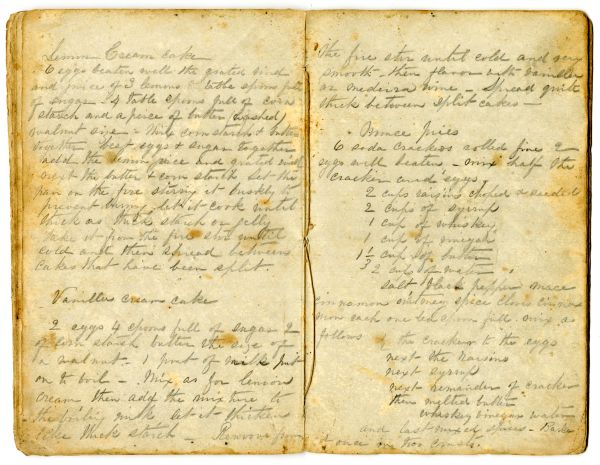 Lemon Cream cake
6 eggs beaten well the grated rind
and juice of 3 lemons table spoons full
of sugar - 4 table spoons full of corn
starch and a piece of butter washed
walnut size - Mix corn starch & butter
together beat eggs & sugar together
add the lemon juice and grated rind
next the butter & corn starch Set the
pan on the fire stirring it briskly to
prevent burning let it cook until
thick as thick starch or jelly
take it from the fire stir until
cold and then spread between
cakes that have been split
Vanilla cream cake
2 eggs 4 spoons full of sugar 2
of corn starch butter the size of
a walnut - 1 pint of milk put
on to boil - Mix as for lemon
cream then add the mixture to
the boiling milk let it thicken
like thick starch - Remove from
the fire stir until cold and very
smooth - then flavor with vanilla
or medeira wine - Spread quite
thick between split cakes -
Mince Pies
6 soda crackers rolled fine 2
eggs well beaten - mix half the
cracker and eggs
2 cups raisins choped & seeded
2 cups of syrup
1 cup of whiskey
1 cup of vinegar
1 1/2 cup of butter
2 cup of water
salt black pepper mace
cinnamon nutmeg spice cloves
each one tea spoon full mix as
follows of the crackers to the eggs
next the raisins
next syrup
next remainder of cracker
then melted butter
whiskey vinegar water
and last mixed spices - Bake
at once in two crusts.